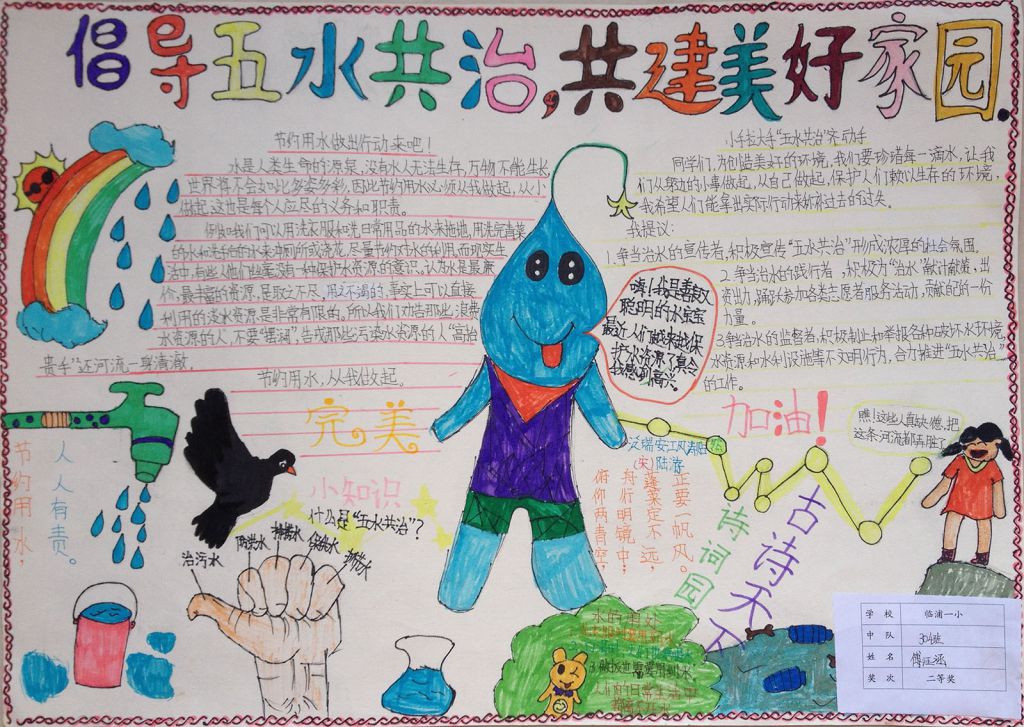 倡导五水共治,共建美好家园.
节约用水做出行动来吧！
水是人类生命的源泉,没有水人无法生存,万物不能生长,
世界将不会如此多姿多彩,因此节约用水必须从我做起,从小
做起,这也是每个人应尽的义务和职责。
例如我们可以用洗衣服和洗日常用品的水来拖地,用洗完青菜
的水和洗手的水来冲厕所或浇花,尽量节约对水的利用,而现实生
活中,有些人他们丝毫没有一种保护水资源的意识,认为水是最廉
价,最丰富的资源,是取之不尽,用之不竭的,事实上可以直接
利用的淡水资源是非常有限的,所以我们劝告那些浪费
水资源的人,不要"摆阔",告戒那些污染水资源的人"高抬
贵手"还河流一身清澈.
节约用水,从我做起。
小手拉大手"五水共治"齐动手
同学们,为创造美好的环境,我们要珍惜每一滴水,让我
们从身边的小事做起,从自己做起,保护人们赖以生存的环境,
我希望人们能拿出实际行动来弥补过去的过失。
我提议:
1.争当治水的宣传者,积极宣传"五水共治"形成浓厚的社会氛围。
2.争当治水的践行者,积极为"治水"献计献策,出
资出力,踊跃参加各类志愿者服务活动,贡献自己的一份
力量。
3.争当治水的监督者,积极制止和举报各种破坏水环境,
水资源和水利设施等不文明行为,合力推进"五水共治"
的工作。
嗨!我是善良又
聪明的水宝宝
最近人们越来越保
护水资源了真令
我感到高兴
完美
加油!
瞧!这些人真缺德,把
这条河流都弄脏了
节约用水,
人人有责。
小知识
什么是"五水共治"?
治污水
防洪水
排涝水
保供水
抓节水
泛瑞安江风涛贴然
(宋)陆游
俯仰两青空,
舟行明镜中;
蓬莱定不远,
正要一帆风。
诗词园
古诗天下
水的用处
3.做饭也需要用到水
人们的日常生活中
都离不开水
学 校 临浦一小
中 队 304班
姓 名
奖 次 二等奖